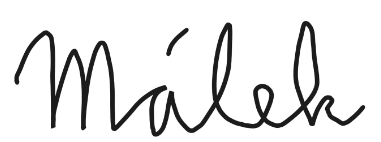 Málek